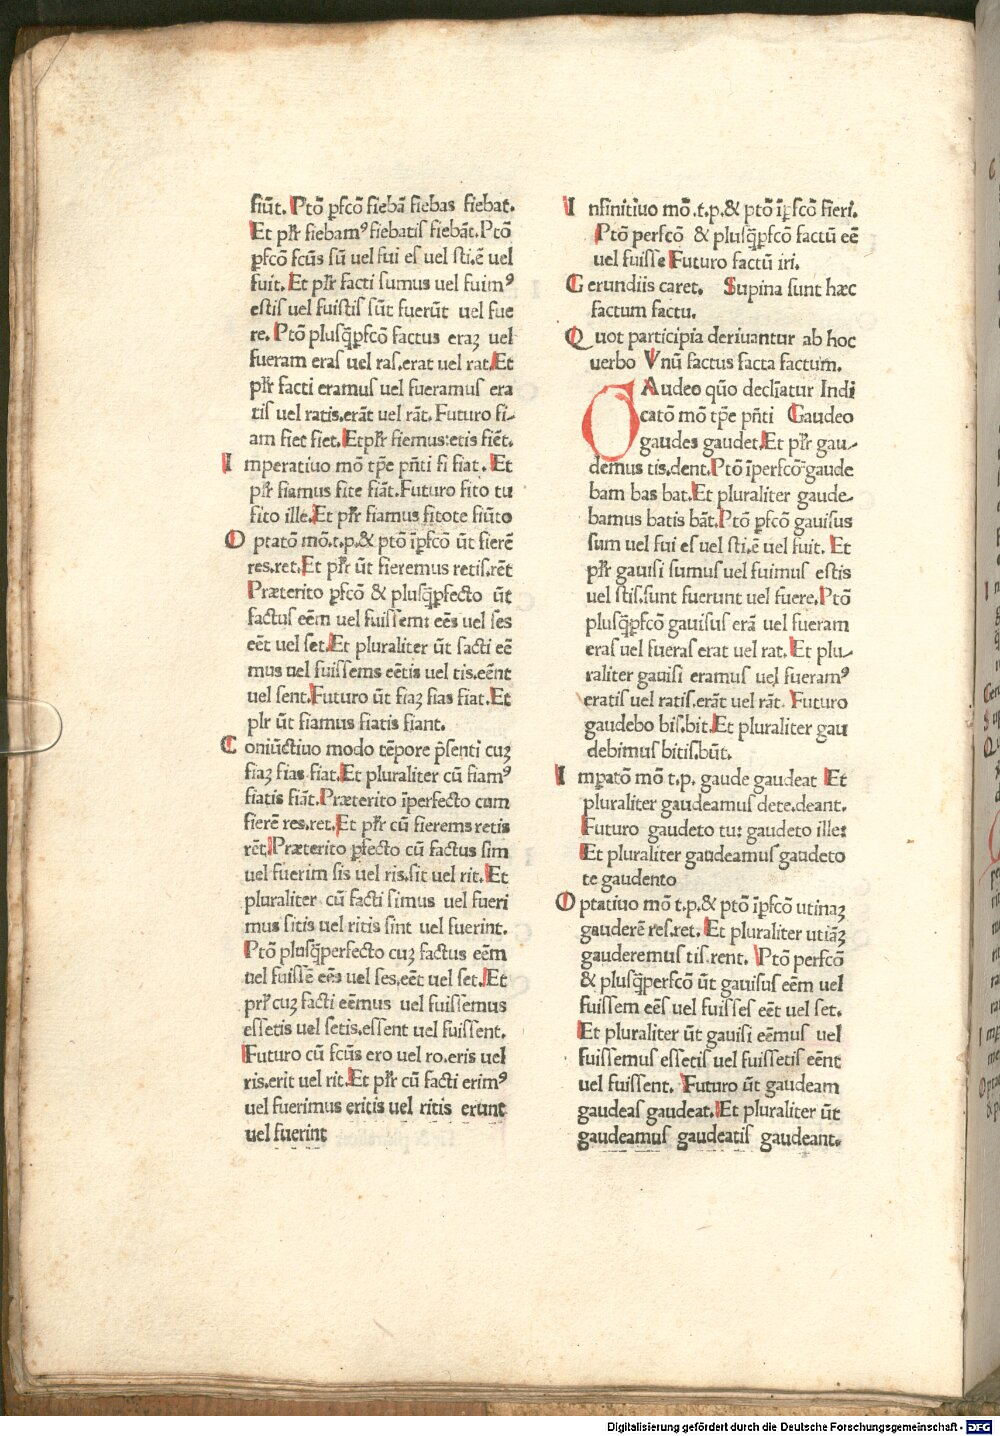 fiũt. Ptõ ꝑfcõ fiebã fiebas fiebat.
Et pɫr fiebamꝰ fiebatis fiebãt. Ptõ
ꝑfcõ fcũs sũ uel fui es uel sti.ẽ uel
fuit. Et pɫr facti sumus uel fuimꝰ
estis uel fuistis sũt fuerũt uel fue
re. Ptõ plusq̃ꝑfcõ factus eraꝫ uel
fueram eras uel ras.erat uel rat. Et
pɫr facti eramus uel fueramus era
tis uel ratis.erãt uel rãt. Futuro fi-
am fiet fiet. Et pɫr fiemus:etis fiẽt.
Imperatiuo mõ tp̃e pñti fi fiat. Et
pɫr fiamus fite fiãt. Futuro fito tu
fito ille. Et pɫr fiamus fitote fiũto
Optatõ mõ.t.p.& ptõ ĩꝑfcõ ũt fierẽ
res.ret. Et pɫr ũt fieremus retis.rẽt
Præterito ꝑfcõ & plusq̃ꝑfecto ũt
factus eẽm uel fuissem: eẽs uel ses
eẽt uel set. Et pluraliter ũt facti eẽ
mus uel fuissems eẽtis uel tis.eẽnt
uel sent. Futuro ũt fiaꝫ fias fiat. Et
plr ũt fiamus fiatis fiant.
Coniũctiuo modo tẽpore p̃senti cuꝫ
fiaꝫ fias fiat. Et pluraliter cũ fiamꝰ
fiatis fiãt. Præterito ĩperfecto cum
fierẽ res.ret. Et pɫr cũ fierems retis
rẽt. Præterito ꝑfecto cũ factus sim
uel fuerim sis uel ris.sit uel rit. Et
pluraliter cũ facti simus uel fueri
mus sitis uel ritis sint uel fuerint.
Ptõ plusq̃perfecto cuꝫ factus eẽm
uel fuissẽ eẽs uel ses.eẽt uel set. Et
prɫ cuꝫ facti eẽmus uel fuissemus
essetis uel setis.essent uel fuissent.
Futuro cũ fcũs ero uel ro.eris uel
ris.erit uel rit. Et pɫr cũ facti erimꝰ
uel fuerimus eritis uel ritis erunt
uel fuerint
Infinitiuo mõ.t.p.& ptõ ĩꝑfcõ fieri.
Ptõ perfcõ & plusq̃ꝑfcõ factũ eẽ
uel fuisse Futuro factũ iri.
Gerundiis caret. Supina sunt hæc
factum factu.
Quot participia deriuantur ab hoc
uerbo Vnũ factus facta factum.
GAudeo quõ decliatur Indi
catõ mõ tp̃e pñti Gaudeo
gaudes gaudet. Et pɫr gau-
demus tis.dent. Ptõ ĩperfcõ gaude
bam bas bat. Et pluraliter gaude-
bamus batis bãt. Ptõ ꝑfcõ gauisus
sum uel fui es uel sti.ẽ uel fuit. Et
pɫr gauisi sumus uel fuimus estis
uel stis.sunt fuerunt uel fuere. Ptõ
plusq̃ꝑfcõ gauisus erã uel fueram
eras uel fueras erat uel rat. Et plu-
raliter gauisi eramus uel fueramꝰ
eratis uel ratis.erãt uel rãt. Futuro
gaudebo bis.bit. Et pluraliter gau
debimus bitis.bũt.
Imꝑatõ mõ t.p. gaude gaudeat Et
pluraliter gaudeamus dete.deant.
Futuro gaudeto tu: gaudeto ille:
Et pluraliter gaudeamus gaudeto
te gaudento
Optatiuo mõ t.p.& ptõ ĩꝑfcõ utinaꝫ
gauderẽ res.ret. Et pluraliter utiãꝫ
gauderemus tis.rent. Ptõ perfcõ
& plusq̃perfcõ ũt gauisus eẽm uel
fuissem eẽs uel fuisses eẽt uel set.
Et pluraliter ũt gauisi eẽmus uel
fuissemus essetis uel fuissetis eẽnt
uel fuissent. Futuro ũt gaudeam
gaudeas gaudeat. Et pluraliter ũt
gaudeamus gaudeatis gaudeant.
Digitalisierung gefördert durch die Deutsche Forschungsgemeinschaft - DFG